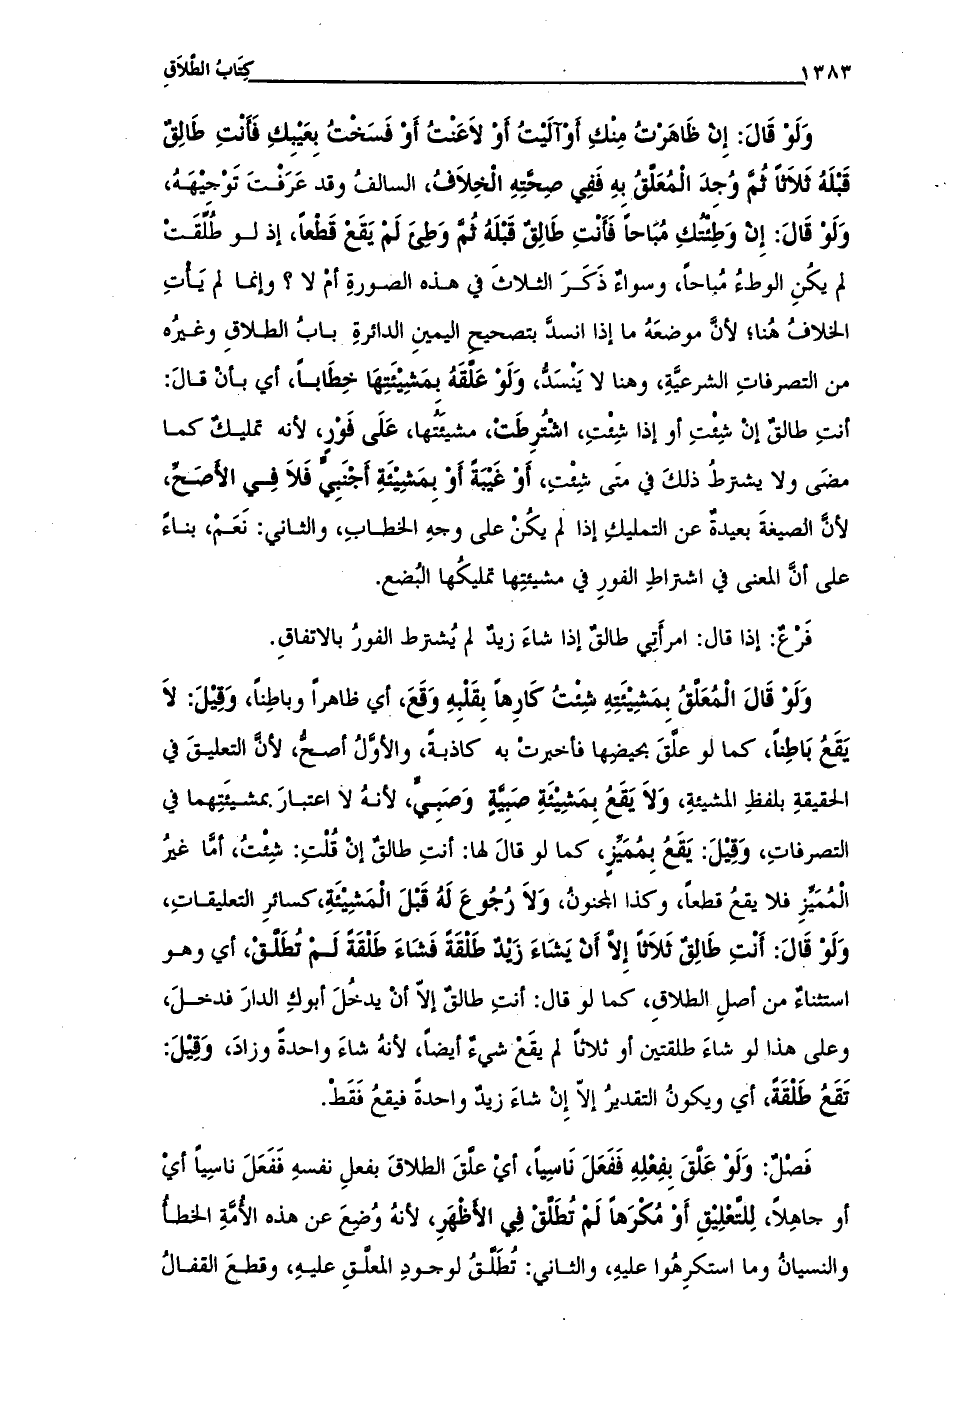 ١٣٨٣ كِتَابُ الطَّلَاقِ
وَلَوْ قَالَ: إِنْ ظَاهَرْتُ مِنْكِ أَوْ آلَيْتُ أَوْ لاَعَنْتُ أَوْ فَسَخْتُ بِعَيْبِكِ فَأَنْتِ طَالِقٌ
قَبْلَهُ ثَلاَثاً ثُمَّ وُجِدَ الْمُعَلَّقُ بِهِ فَفِي صِحَّتِهِ الْخِلاَفُ، السالفُ وقد عَرَفْتَ تَوْجِيْهَهُ،
وَلَوْ قَالَ: إِنْ وَطِئْتُكِ مُبَاحاً فَأَنْتِ طَالِقٌ قَبْلَهُ ثُمَّ وَطِئَ لَمْ يَقَعْ قَطْعاً، إذ لـو طُلِّقَـتْ
لم يكُنِ الوطءُ مُباحاً، وسواءٌ ذَكَـرَ الثـلاثَ في هـذه الصـورةِ أمْ لا ؟ وإنمـا لم يَـأتِ
الخلافُ هُنا؛ لأنَّ موضعَهُ ما إذا انسدَّ بتصحيحِ اليمينِ الدائرةِ بابُ الطلاقِ وغيرُه
من التصرفاتِ الشرعيَّةِ، وهنا لا يَنْسَدُّ، وَلَوْ عَلَّقَهُ بِمَشِيْئَتِهَا خِطَاباً، أي بـأنْ قـالَ:
أنتِ طالقٌ إنْ شِئْتِ أو إذا شِئْتِ، اشْتُرِطَتْ، مشيئَتُها، عَلَى فَوْرٍ، لأنه تمليـكٌ كمـا
مضَى ولا يشترطُ ذلكَ في متَى شِئْتِ، أَوْ غَيْبَةً أَوْ بِمَشِيْئَةِ أَجْنَبِيٍّ فَلاَ فِـي الأَصَـحِّ،
لأنَّ الصيغةَ بعيدةٌ عن التمليكِ إذا لم يكُنْ على وجهِ الخطابِ، والثاني: نَعَـمْ، بناءً
على أنَّ المعنى في اشتراطِ الفورِ في مشيئتِها تمليكُها البُضع.
فَرْعٌ: إذا قال: امرأَتِي طالقٌ إذا شاءَ زيدٌ لم يُشترط الفورُ بالاتفاقِ.
وَلَوْ قَالَ الْمُعَلَّقُ بِمَشِيْئَتِهِ شِئْتُ كَارِهاً بِقَلْبِهِ وَقَعَ، أي ظاهراً وباطِناً، وَقِيْلَ: لاَ
يَقَعُ بَاطِناً، كما لو علَّقَ بحيضِها فأخبرتْ به كاذبةً، والأوَّلُ أصـحُّ، لأنَّ التعليـقَ في
الحقيقةِ بلفظِ المشيئةِ، وَلاَ يَقَعُ بِمَشِيْئَةِ صَبِيَّةٍ وَصَبِيٍّ، لأنـهُ لا اعتبـارَ بمشـيئَتِهما في
التصرفاتِ، وَقِيْلَ: يَقَعُ بِمُمَيِّزٍ، كما لو قالَ لها: أنتِ طالقٌ إنْ قُلْتِ: شِئْتُ، أمَّا غيرُ
الْمُمَيِّزِ فلا يقعُ قطعاً، وكذا المجنونُ، وَلاَ رُجُوعَ لَهُ قَبْلَ الْمَشِيْئَةِ، كسائرِ التعليقاتِ،
وَلَوْ قَالَ: أَنْتِ طَالِقٌ ثَلاَثاً إِلاَّ أَنْ يَشَاءَ زَيْدٌ طَلْقَةً فَشَاءَ طَلْقَةً لَـمْ تُطَلَّـقْ، أي وهـو
استثناءٌ من أصلِ الطلاقِ، كما لو قال: أنتِ طالقٌ إلاّ أنْ يدخُلَ أبوكِ الدارَ فدخـلَ،
وعلى هذا لو شاءَ طلقتين أو ثلاثاً لم يقعْ شيءٌ أيضاً، لأنهُ شاءَ واحدةً وزادَ، وَقِيْلَ:
تَقَعُ طَلْقَةً، أي ويكونُ التقديرُ إلاّ إنْ شاءَ زيدٌ واحدةً فيقعُ فَقَطْ.
فَصْلٌ: وَلَوْ عَلَّقَ بِفِعْلِهِ فَفَعَلَ نَاسِياً، أيْ علَّقَ الطلاقَ بفعلِ نفسهِ فَفَعَلَ ناسِياً أيْ
أو جاهِلاً، لِلتَّعْلِيْقِ أَوْ مُكْرَهاً لَمْ تُطَلَّقْ فِي الأَظْهَرِ، لأنهُ وُضِعَ عن هذه الأُمَّةِ الخطـأُ
والنسيانُ وما استكرِهُوا عليهِ، والثـاني: تُطَلَّـقُ لوجـودِ المعلَّـقِ عليـهِ، وقطـعَ القفـالُ